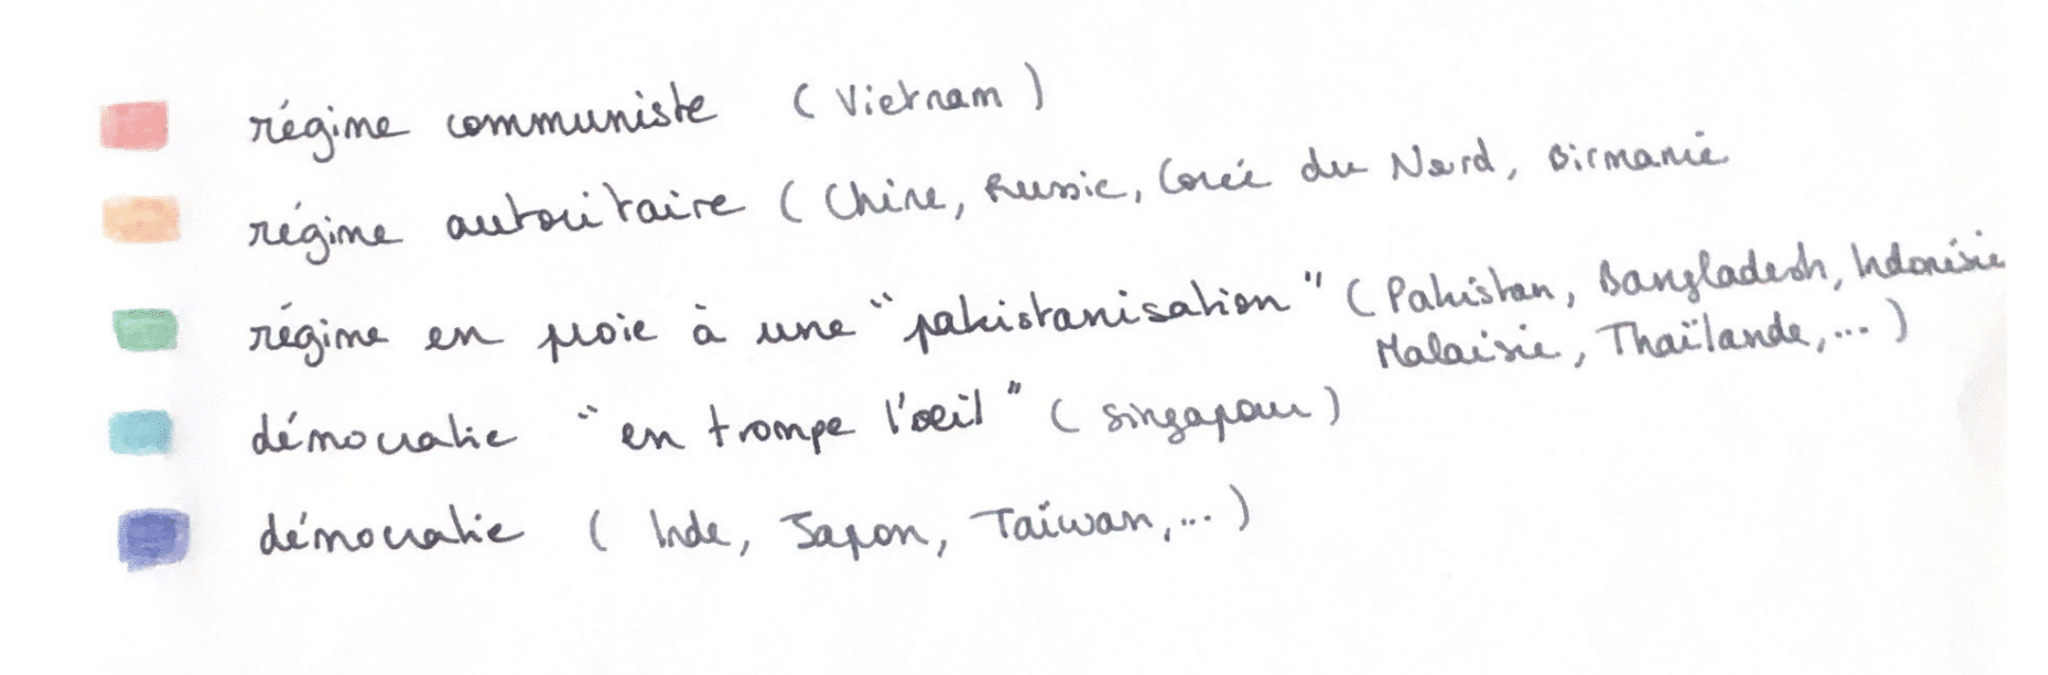 régime communiste (Vietnam)
régime autoritaire (Chine, Russie, Corée du Nord, Birmanie
régime en proie à une "pakistanisation" (Pakistan, Bangladesh, Indonésie
Malaisie, Thaïlande,...)
démocratie "en trompe l'oeil" (Singapour)
démocratie (Inde, Japon, Taïwan,...)